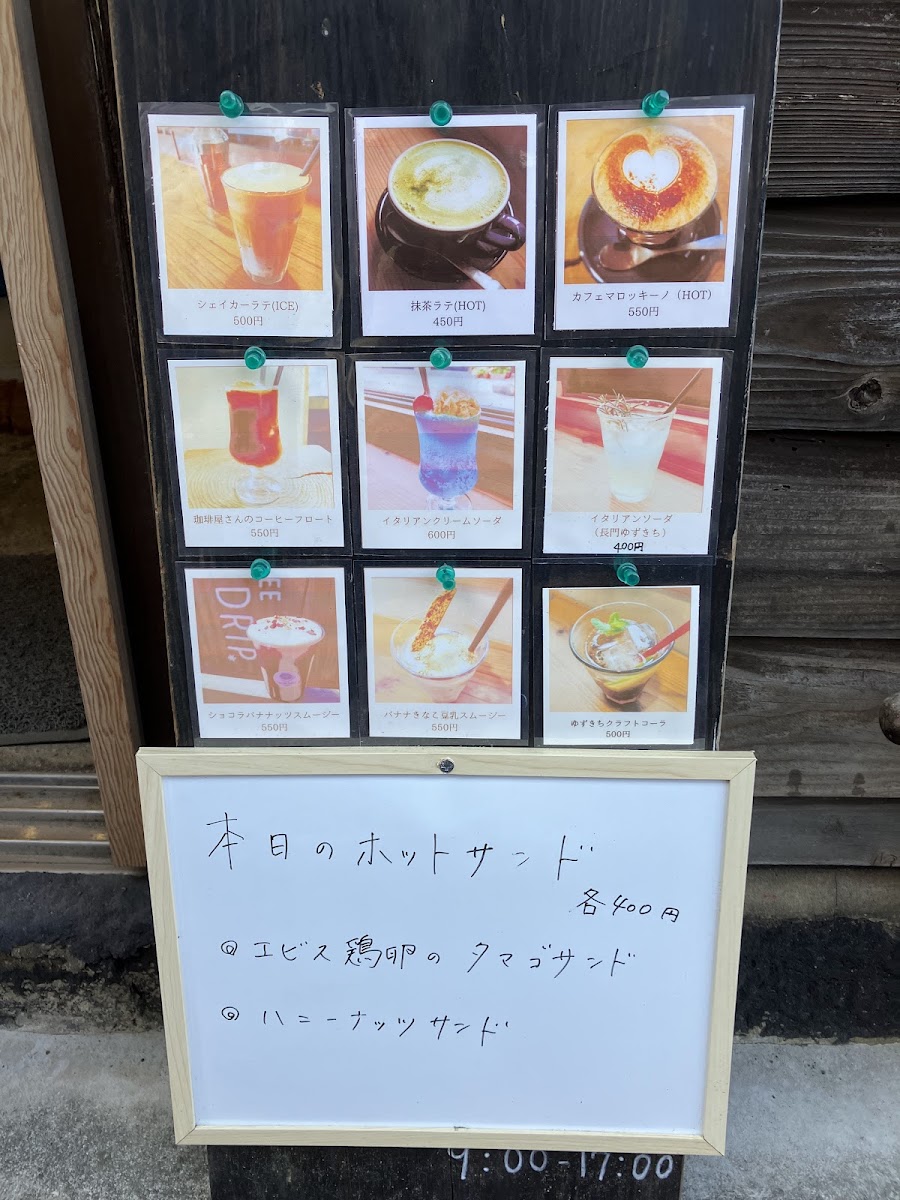 シェイカーラテ(ICE)
500円
抹茶ラテ(HOT)
450円
カフェマロッキーノ（HOT）
550円
珈琲屋さんのコーヒーフロート
550円
イタリアンクリームソーダ
600円
イタリアンソーダ
（長門ゆずきち）
400円
EE
DRIP.
ショコラバナナッツスムージー
550円
バナナきなこ豆乳スムージー
550円
ゆずきちクラフトコーラ
500円
本日のホットサンド
各400円
◎エビス鶏卵のタマゴサンド
◎ハニーナッツサンド
9:00-17:00